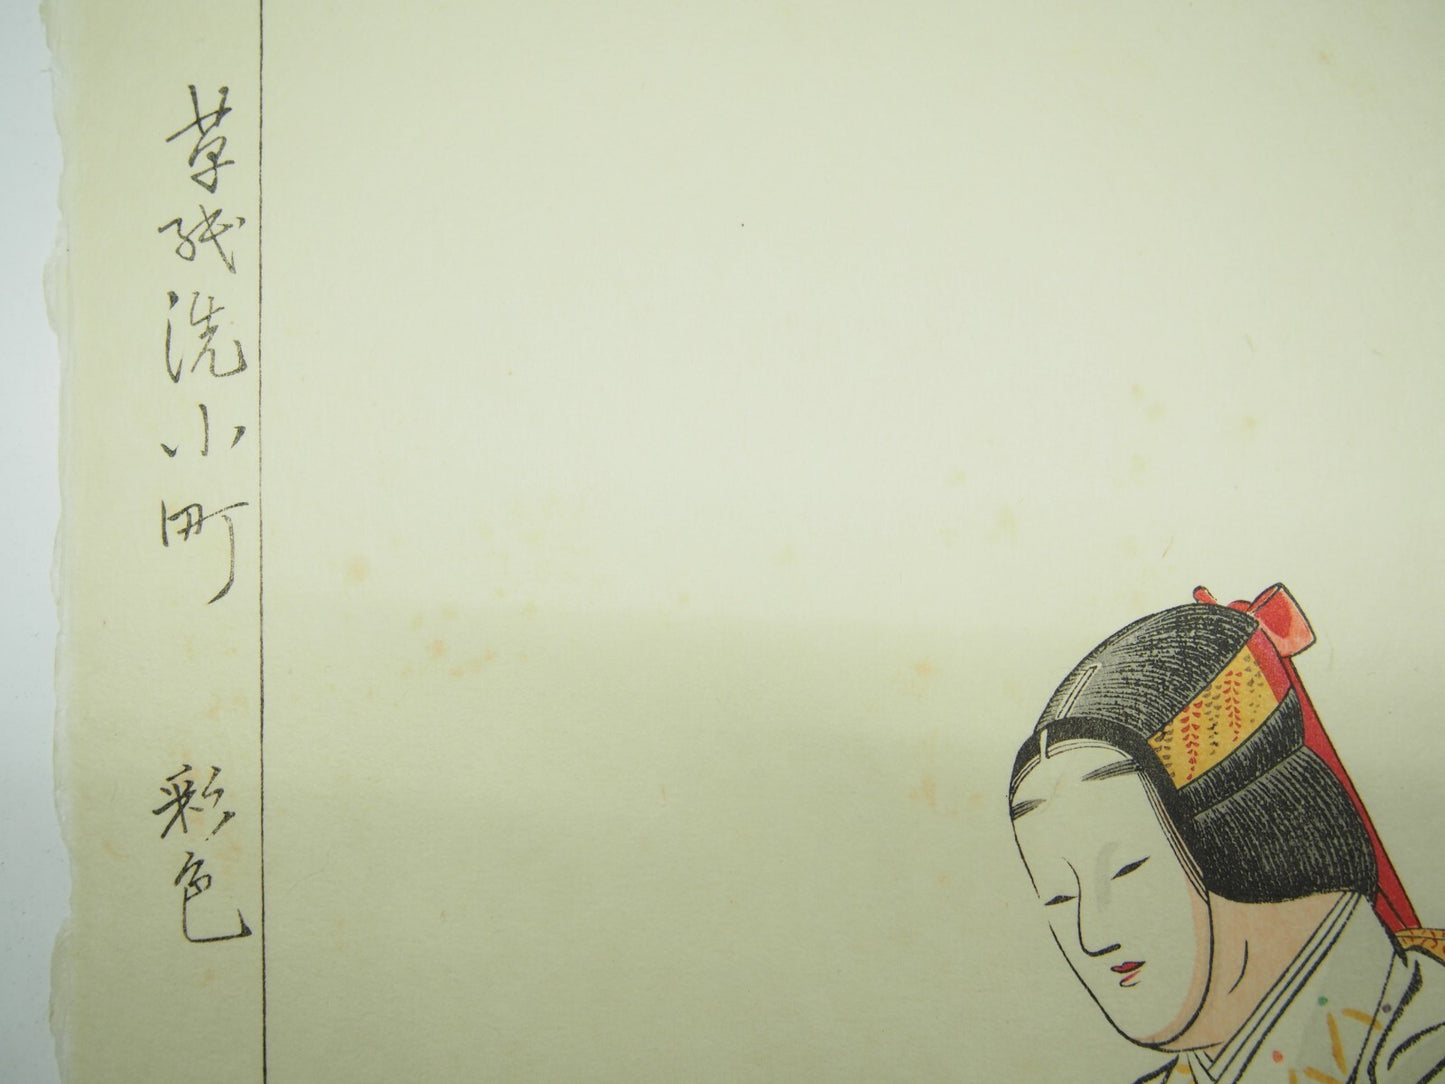 草紙洗小町 彩色